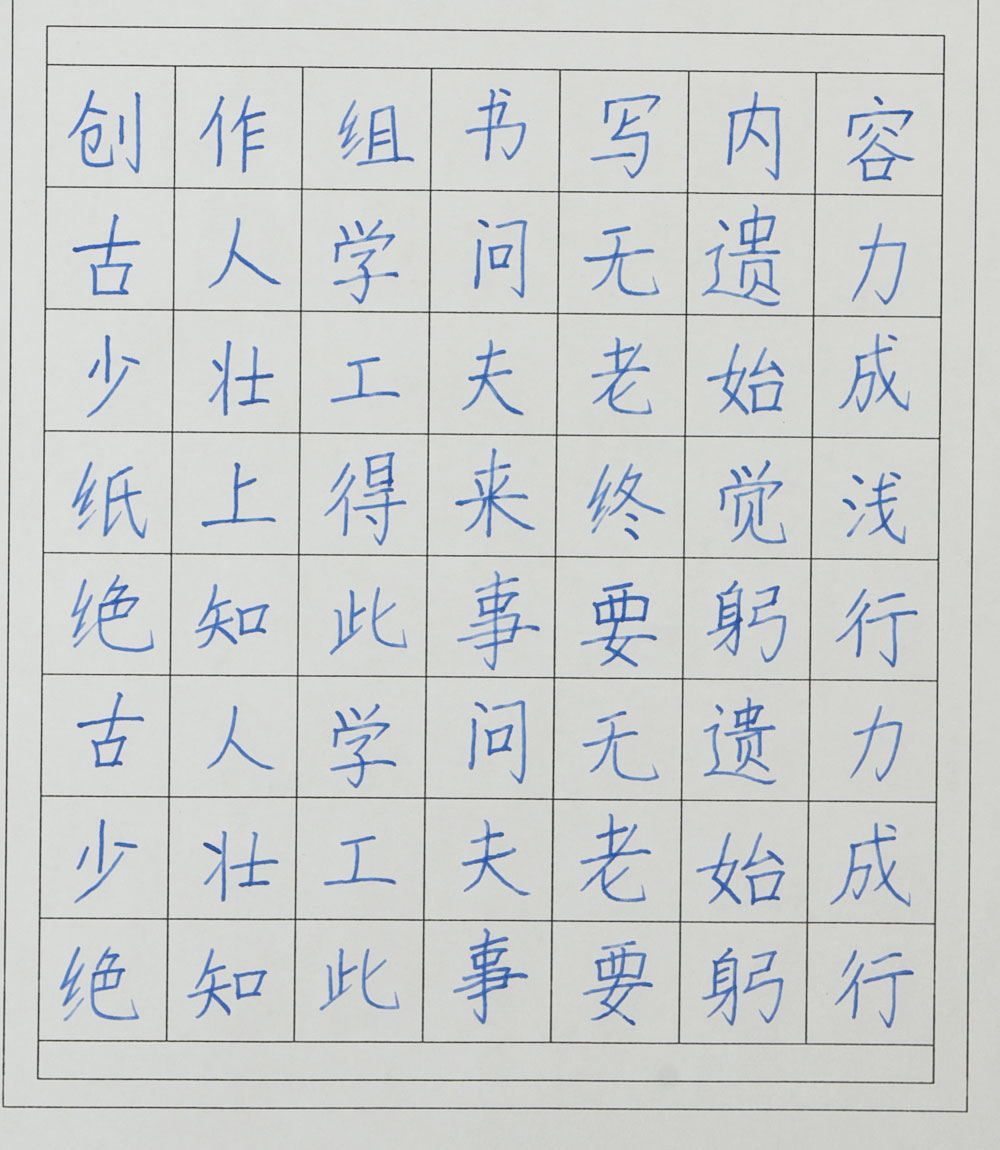 创作组书写内容
古人学问无遗力
少壮工夫老始成
纸上得来终觉浅
绝知此事要躬行
古人学问无遗力
少壮工夫老始成
绝知此事要躬行